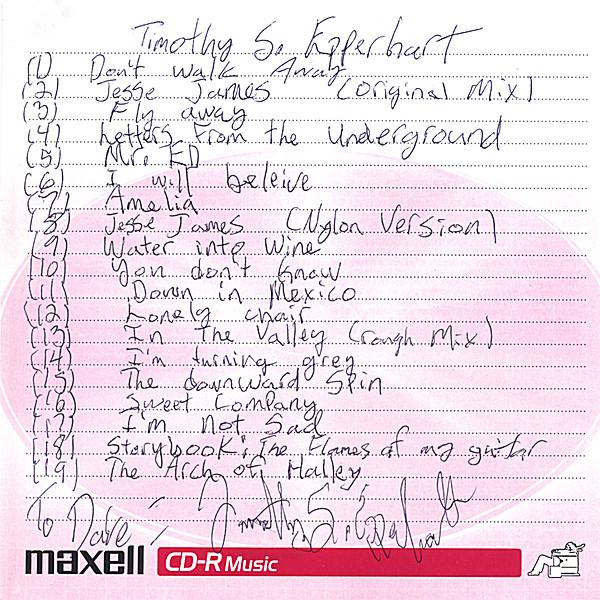 Timothy S. Epperhart
(1) Don't walk Away
(2) Jesse James (original Mix)
(3) Fly away
(4) Letters From the Underground
(5) Mr. ED
(6) I will beleive
(7) Amelia
(8) Jesse James (Nylon Version)
(9) Water into Wine
(10) You don't know
(11) Down in Mexico
(12) Lonely chair
(13) In The Valley (rough Mix)
(14) I'm turning grey
(15) The downward Spin
(16) Sweet Company
(17) I'm not Sad
(18) Storybook: The Flames of my guitar
(19) The Arch of Halley
To Dave: Timothy S. Epperhart
maxell CD-R Music